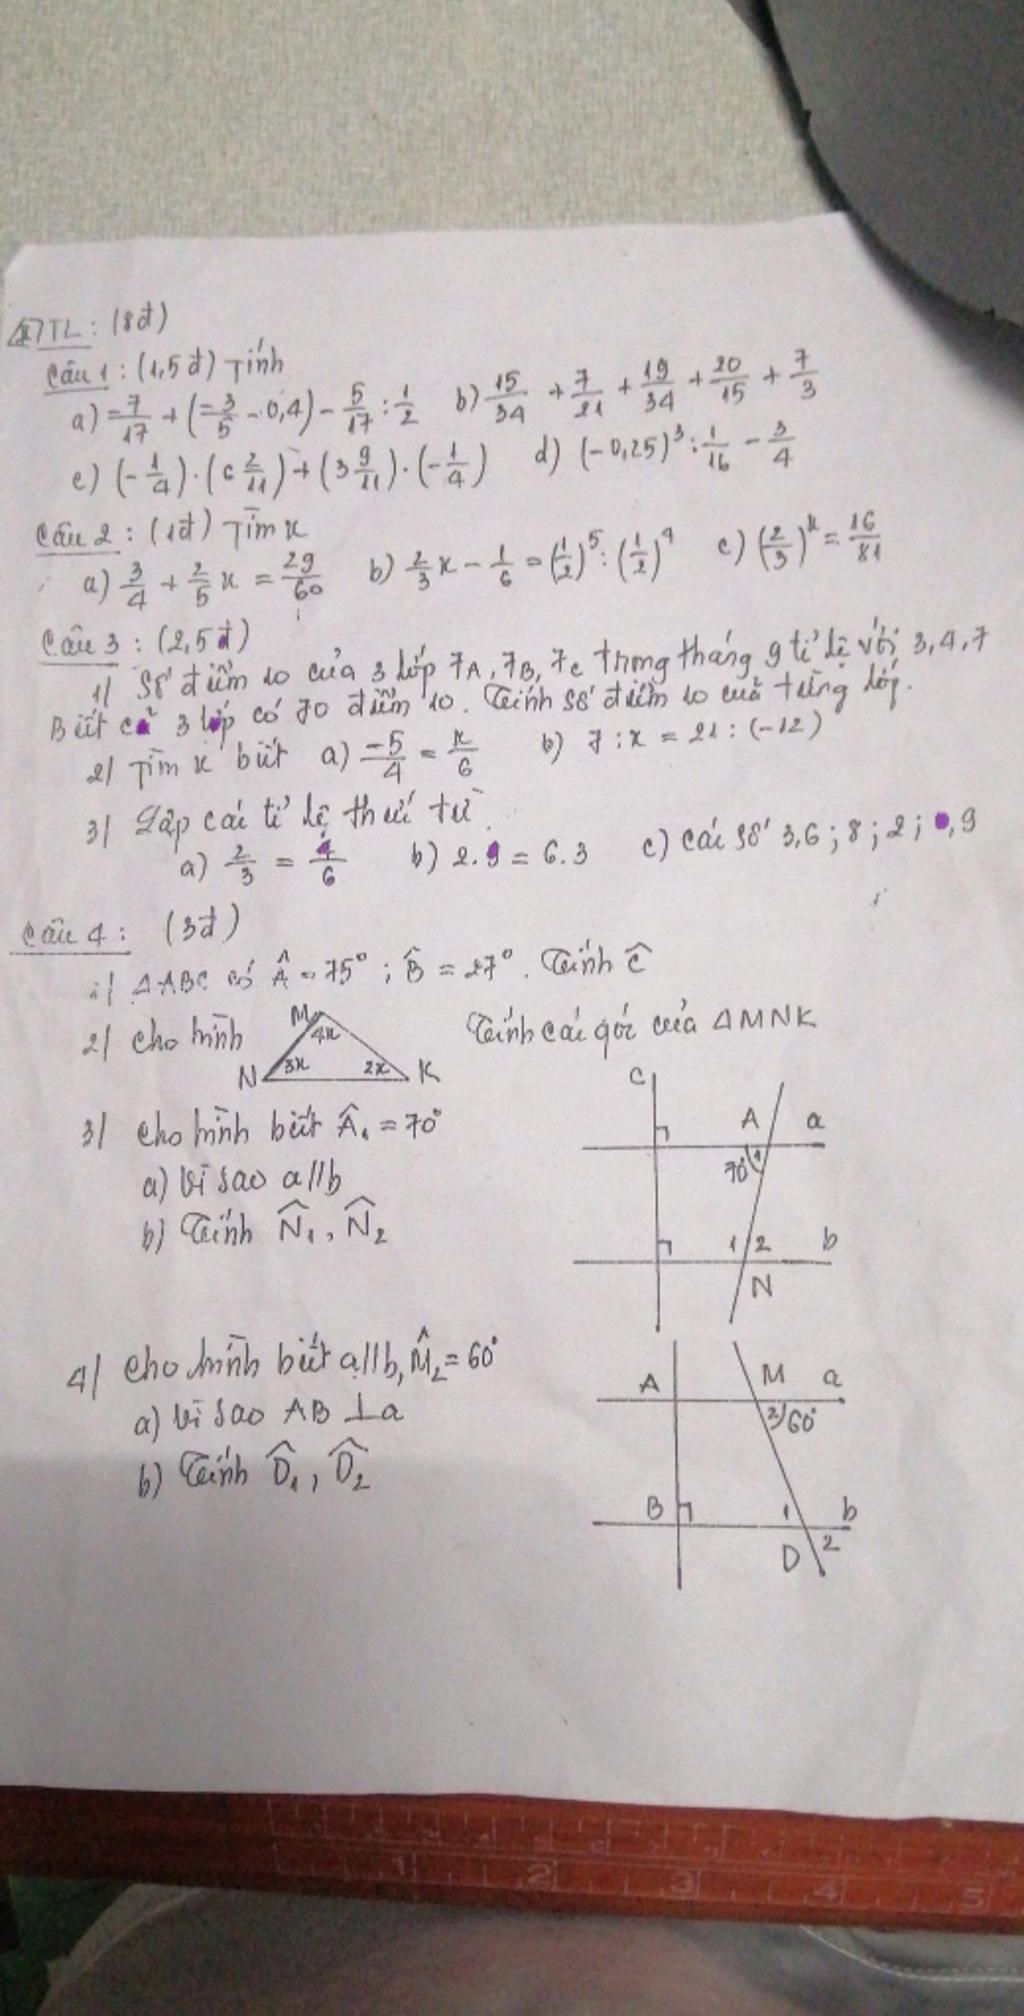 II) TL: (8đ)
Câu 1: (1,5đ) Tính
a) -7/17 + (-3/5 - 0,4) - 5/17 : 1/2 b) 15/34 + 7/21 + 19/34 + 20/15 + 7/3
c) (-1/4) . (6 2/11) + (3 9/11) . (-1/4) d) (-0,25)³ : 1/16 - 3/4
Câu 2: (1đ) Tìm x
a) 3/4 + 2/5 x = 29/60 b) 2/3 x - 1/6 = (1/2)⁵ : (1/2)⁴ c) (2/3)ˣ = 16/81
Câu 3: (2,5đ)
1/ Số điểm 10 của 3 lớp 7A, 7B, 7C trong tháng 9 tỉ lệ với 3,4,7
Biết cả 3 lớp có 70 điểm 10. Tính số điểm 10 của từng lớp.
2/ Tìm x biết a) -5/4 = x/6 b) 7 : x = 21 : (-12)
3/ Lập các tỉ lệ thức từ
a) 2/3 = 4/6 b) 2.9 = 6.3 c) Các số 3,6 ; 8 ; 2 ; 0,9
Câu 4: (3đ)
1/ ΔABC có Â = 75° ; B̂ = 27°. Tính Ĉ
2/ Cho hình M 4x N 3x 2x K Tính các góc của ΔMNK
3/ Cho hình biết Â₁ = 70°
a) Vì sao a//b
b) Tính N̂₁, N̂₂
C A a
70° 1
1 2 b
N
4/ Cho hình biết a//b, M̂₂ = 60°
a) Vì sao AB ⊥ a
b) Tính D̂₁, D̂₂
A M a
2 60°
B 1 b
D 2
1 2 3 4 5